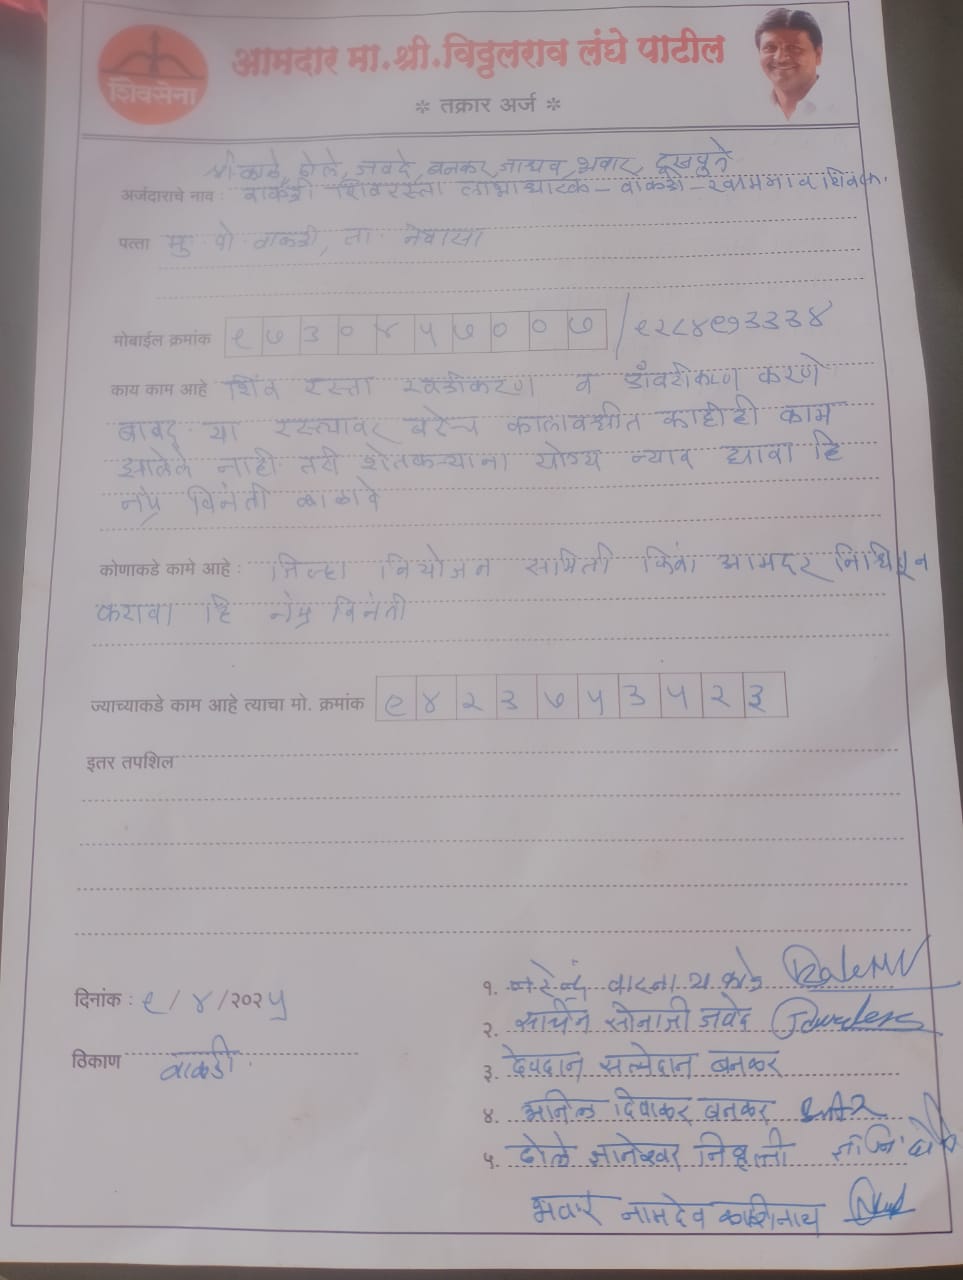 शिवसेना
आमदार मा.श्री.विठ्ठलराव लंघे पाटील
* तक्रार अर्ज *
श्री काळे, ढोले, जवदे, बनकर, जाधव, भवार,
अर्जदाराचे नाव : वाकडी शिवरस्ता लाभाधारक - वाकडी -
पत्ता मु. पो. वाकडी, ता. नेवासा
मोबाईल क्रमांक ९७३०४५७००७ / ९२८४९७३३३४
काय काम आहे शिव रस्ता खडीकरण व डाँबरीकरण करणे
बाबद. या रस्त्यावर बरेच कालावधीत काहीही काम
झालेले नाही. तरी शेतकऱ्याना योग्य न्याय द्यावा हि
नम्र विनंती
कोणाकडे कामे आहे : जिल्हा नियोजन समिती किंवा आमदार
करावा हि नम्र विनंती
ज्याच्याकडे काम आहे त्याचा मो. क्रमांक ९४२३७५३५२३
इतर तपशिल
दिनांक : ९/४/२०२५
ठिकाण वाकडी
१. नरेन्द्र काळे
२. सचिन सोनाजी जवदे
३. देवदान सत्येदान बनकर
४. अनिल दिवाकर बनकर
५. ढोले ज्ञानेश्वर निवृत्ती
भवार नामदेव काशिनाथ